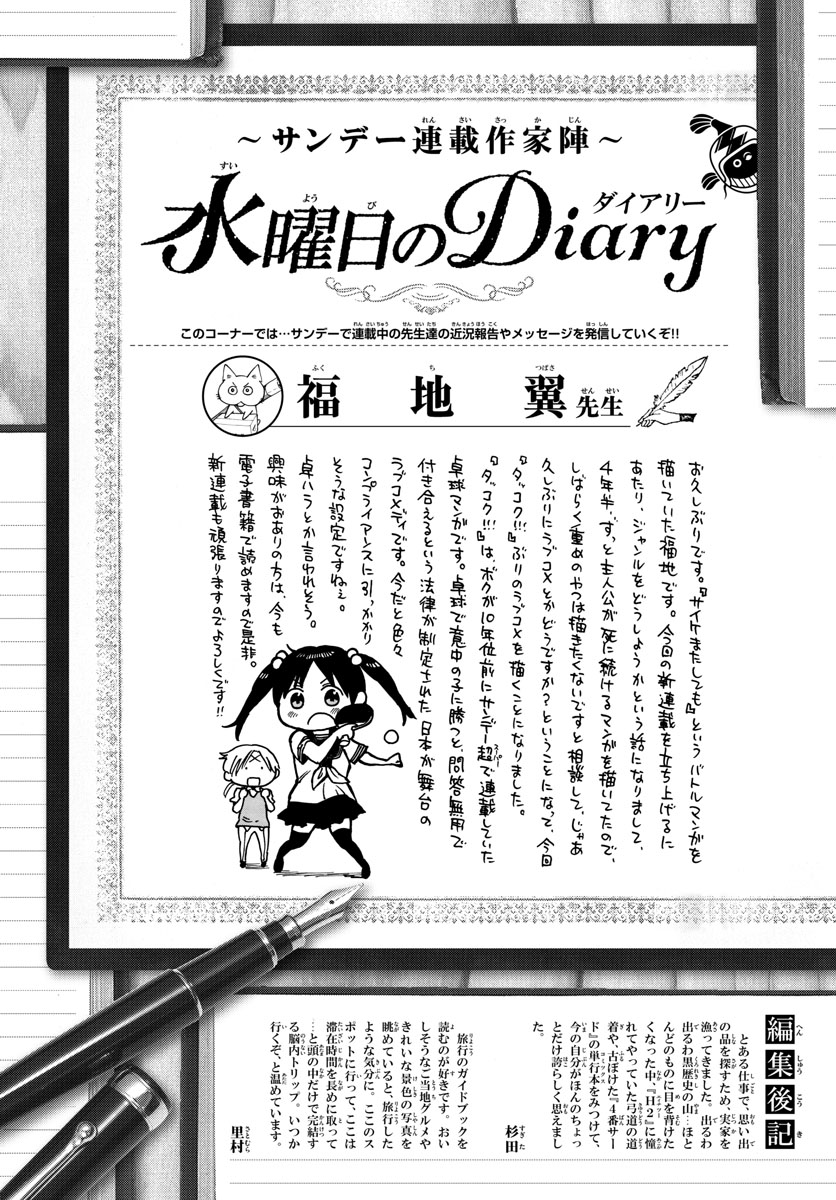 ～サンデー連載作家陣～
水曜日のDiary
ダイアリー
このコーナーでは…サンデーで連載中の先生達の近況報告やメッセージを発信していくぞ!!
福地翼先生
お久しぶりです。『サイケまたしても』というバトルマンガを
描いていた福地です。今回の新連載を立ち上げるに
あたり、ジャンルをどうしようかという話になりまして、
4年半、ずっと主人公が死に続けるマンガを描いてたので、
しばらく重めのやつは描きたくないですと相談して、じゃあ
久しぶりにラブコメとかどうですか？ということになって、今回
『タッコク!!!』ぶりのラブコメを描くことになりました。
『タッコク!!!』は、ボクが10年位前にサンデー超で連載していた
卓球マンガです。卓球で意中の子に勝つと、問答無用で
付き合えるという法律が制定された日本が舞台の
ラブコメディです。今だと色々
コンプライアンスに引っかかり
そうな設定ですねぇ。
卓ハラとか言われそう。
興味がおありの方は、今も
電子書籍で読めますので是非。
新連載も頑張りますのでよろしくです!!
編集後記
とある仕事で、思い出
の品を探すため、実家を
漁ってきました。出るわ
出るわ黒歴史の山…ほと
んどのものに目を背けた
くなった中、『H2』に憧
れてやっていた弓道の道
着や、古ぼけた『4番サー
ド』の単行本をみつけて、
今の自分がほんのちょっ
とだけ誇らしく思えまし
た。
杉田
旅行のガイドブックを
読むのが好きです。おい
しそうなご当地グルメや
きれいな景色の写真を
眺めていると、旅行した
ような気分に。ここのス
ポットに行って、ここは
滞在時間を長めに取って
…と頭の中だけで完結す
る脳内トリップ。いつか
行くぞ、と温めています。
里村